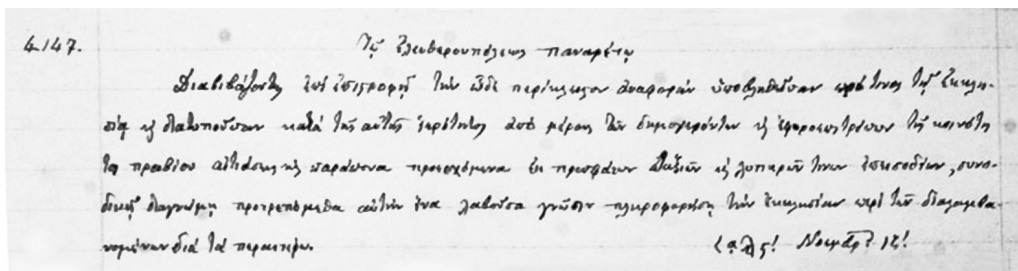 4147. Τῷ Ἐλευθερουπόλεως παναρέτῳ
Διαβιβάζοντες ἐπὶ ἐπιστροφῇ τὴν ὧδε περίκλειστον ἀναφορὰν ὑποβληθεῖσαν πρό τινος τῇ Ἐκκλη-
σίᾳ κ διατυποῦσαν κατὰ τῆς αὐτῆς ἱερότητος ἀπὸ μέρους τῶν δημογερόντων κ ἐφοροεπιτρόπων τῆς κοινότη
τος Πραβίου αἰτιάσεις κ παράπονα προερχόμενα ἐκ προσφάτων κ λυπηρῶν τινων ἐπεισοδίων, συνο-
δικῇ διαγνώμῃ προτρεπόμεθα αὐτὴν ἵνα λαβοῦσα γνῶσιν πληροφορήσῃ τὴν ἐκκλησίαν περὶ τῶν διαλαμβα-
νομένων διὰ τὰ περαιτέρω. Νοεμβρ.